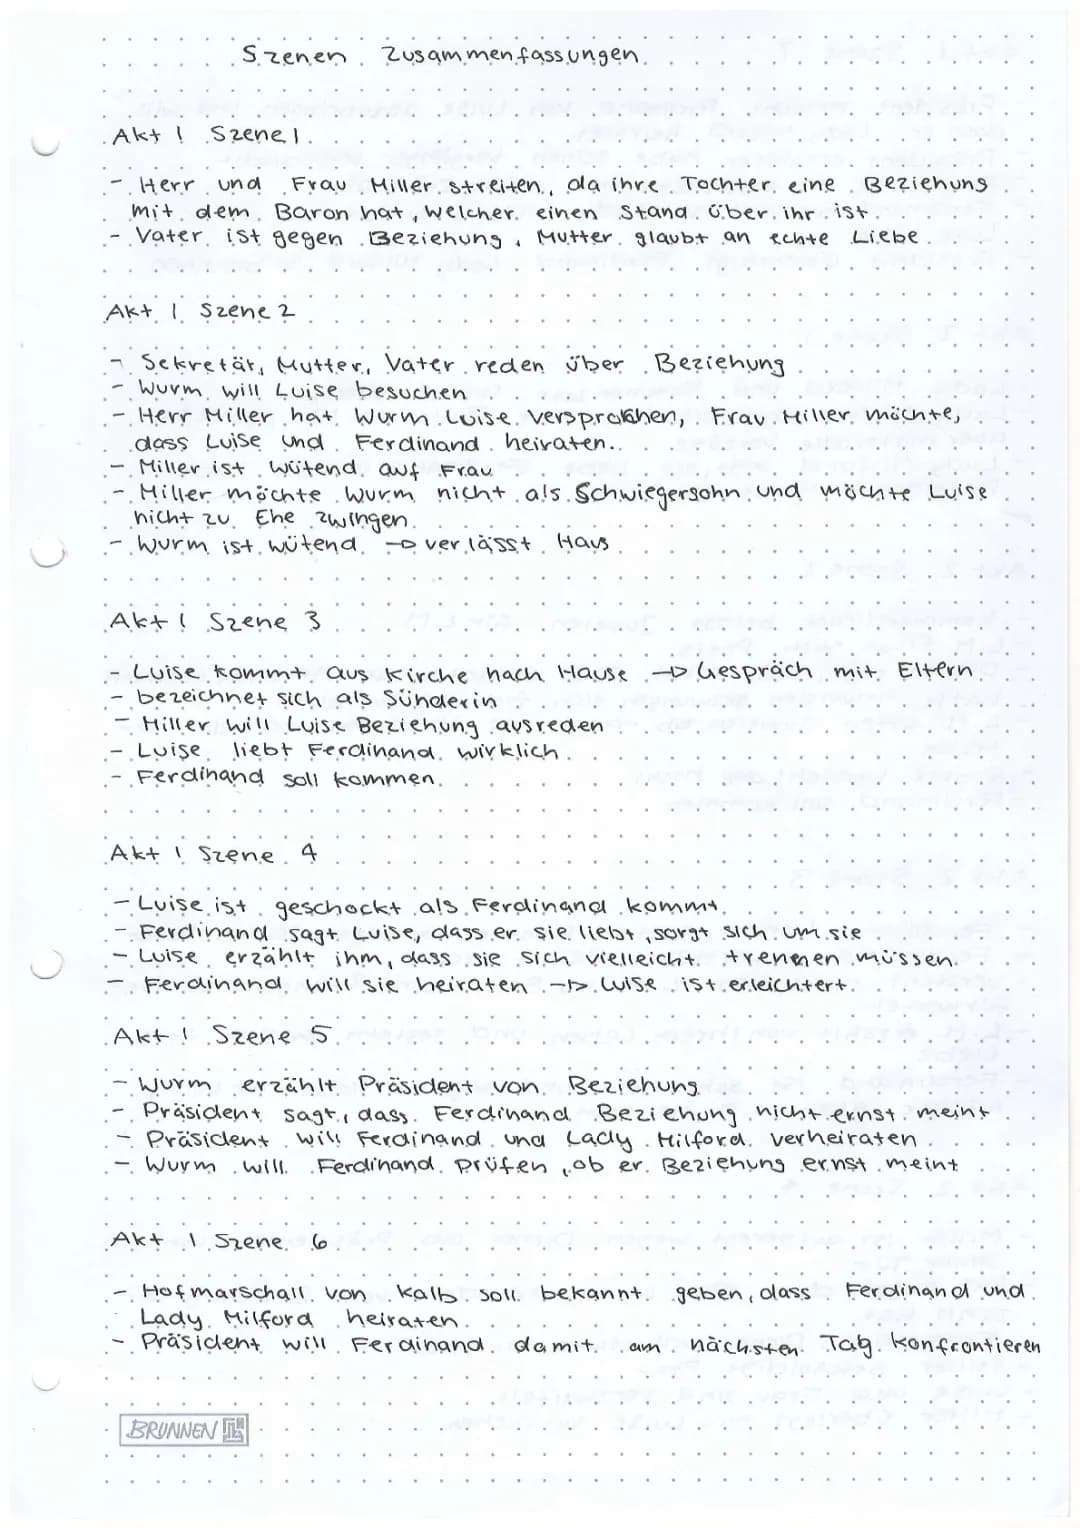 Szenen Zusammenfassungen
Akt 1 Szene 1
- Herr und Frau Miller streiten, da ihre Tochter eine Beziehung
mit dem Baron hat, welcher einen Stand über ihr ist.
- Vater ist gegen Beziehung, Mutter glaubt an echte Liebe
Akt 1 Szene 2
- Sekretär, Mutter, Vater reden über Beziehung
- Wurm will Luise besuchen
- Herr Miller hat Wurm Luise versprochen, Frau Miller möchte,
dass Luise und Ferdinand heiraten.
- Miller ist wütend auf Frau
- Miller möchte Wurm nicht als Schwiegersohn und möchte Luise
nicht zu Ehe zwingen
- Wurm ist wütend → verlässt Haus
Akt 1 Szene 3
- Luise kommt aus Kirche nach Hause → Gespräch mit Eltern
- bezeichnet sich als Sünderin
- Miller will Luise Beziehung ausreden
- Luise liebt Ferdinand wirklich
- Ferdinand soll kommen
Akt 1 Szene 4
- Luise ist geschockt als Ferdinand kommt
- Ferdinand sagt Luise, dass er sie liebt, sorgt sich um sie
- Luise erzählt ihm, dass sie sich vielleicht trennen müssen
- Ferdinand will sie heiraten → Luise ist erleichtert
Akt 1 Szene 5
- Wurm erzählt Präsident von Beziehung
- Präsident sagt, dass Ferdinand Beziehung nicht ernst meint
- Präsident will Ferdinand und Lady Milford verheiraten
- Wurm will Ferdinand Prüfen, ob er Beziehung ernst meint
Akt 1 Szene 6
- Hofmarschall von Kalb soll bekannt geben, dass Ferdinand und
Lady Milford heiraten
- Präsident will Ferdinand damit am nächsten Tag konfrontieren
BRUNNEN